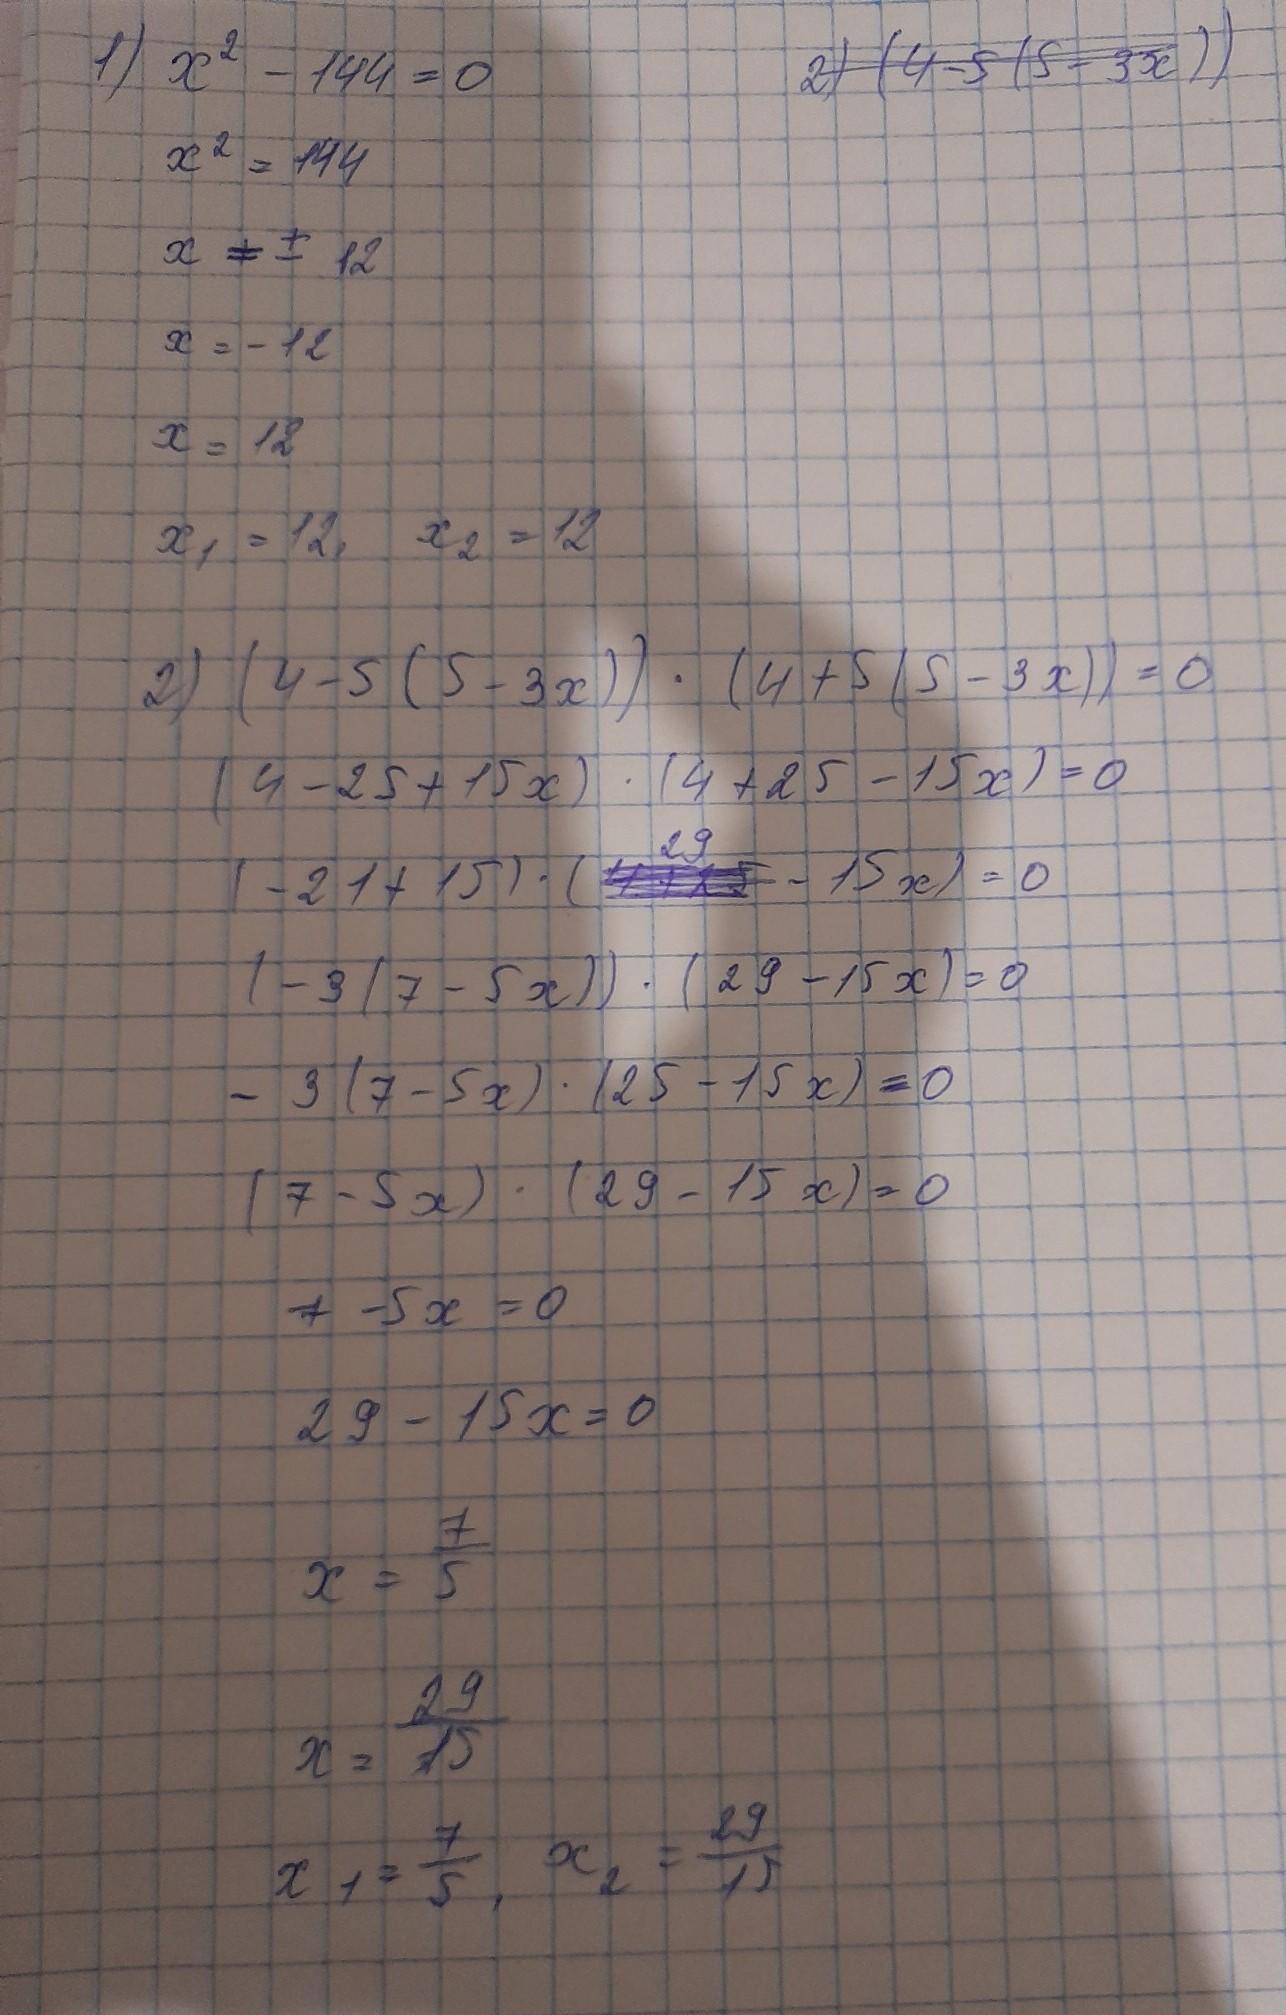 1) x² - 144 = 0
2) (4-5(5-3x))
x² = 144
x = ± 12
x = -12
x = 12
x₁ = 12, x₂ = 12
2) (4-5(5-3x)) · (4+5(5-3x)) = 0
(4-25+15x) · (4+25-15x) = 0
(-21+15) · (29 - 15x) = 0
(-3(7-5x)) · (29-15x) = 0
- 3(7-5x) · (25-15x) = 0
(7-5x) · (29-15x) = 0
7 -5x = 0
29 - 15x = 0
x = 7/5
x = 29/15
x₁ = 7/5, x₂ = 29/15